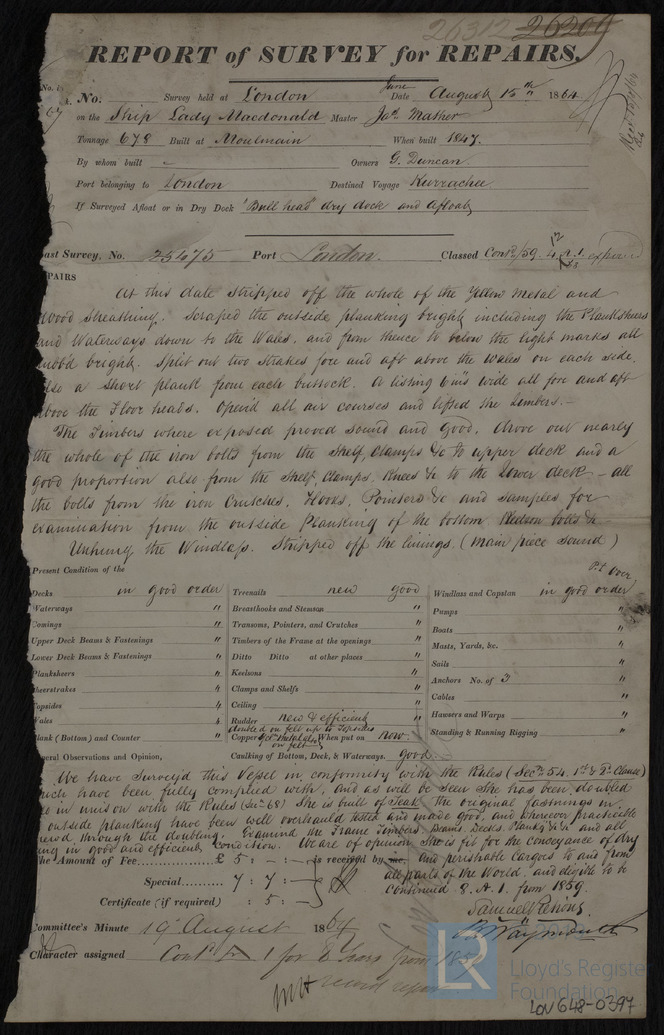 26312 26209
REPORT of SURVEY for REPAIRS.
No. Survey held at London Date June August 15th 1864
on the Ship Lady Macdonald Master Jas. Mather
Tonnage 678 Built at Moulmain When built 1847.
By whom built - Owners G. Duncan
Port belonging to London Destined Voyage Kurrachee
If Surveyed Afloat or in Dry Dock 'Bull head' dry dock and afloat
ast Survey, No. 25475 Port London. Classed Contd/59. 12 A.1. expired
PAIRS
At this date stripped off the whole of the Yellow Metal and
Wood Sheathing. Scraped the outside planking bright, including the Planksheers
and Waterways down to the Wales, and from thence to below the light marks all
bright. Split out two strakes fore and aft above the Wales on each side.
also a short plank from each buttock. A listing 6 ins wide all fore and aft
above the Floor heads. Open'd all air courses and lifted the Limbers.-
The Timbers where exposed proved sound and good. Drove out nearly
the whole of the iron bolts from the Shelf, Clamps &c to upper deck and a
good proportion also from the Shelf, Clamps, Knees &c to the Lower deck - all
the bolts from the iron Crutches, Hooks, Pointers &c and samples for
examination from the outside Planking of the bottom, Keelson bolts &c
Unhung the Windlass. Stripped off the linings. (Main piece sound)
P.t over
Present Condition of the
Decks in good order Treenails new good Windlass and Capstan in good order
Waterways " Breasthooks and Stemson " Pumps "
Comings " Transoms, Pointers, and Crutches " Boats "
Upper Deck Beams & Fastenings " Timbers of the Frame at the openings " Masts, Yards, &c. "
Lower Deck Beams & Fastenings " Ditto Ditto at other places " Sails "
Planksheers " Keelsons " Anchors No. of 3 "
Sheerstrakes " Clamps and Shelfs " Cables "
Topsides " Ceiling " Hawsers and Warps "
Wales " Rudder new & efficient Standing & Running Rigging "
doubled on felt up to Topsides
lank (Bottom) and Counter " Copper Yel Metal When put on now
on felt
Caulking of Bottom, Deck, & Waterways. good
eral Observations and Opinion,
We have Survey'd this Vessel in conformity with the Rules (Secn. 54. 1st & 2d Clause)
which have been fully complied with, and as will be seen she has been doubled
in unison with the Rules (Sec 68) She is built of teak, the original fastnings in
outside planking have been well overhauld tested and made good, and wherever practicable
through the doubling. Examind the Frame Timbers, Beams, Decks, Planks &c &c and all
in good and efficient condition. We are of opinion she is fit for the conveyance of dry
The Amount of Fee £ 5 : - : - is received by me, and perishable Cargoes to and from
all parts of the World, and eligible to be
Special 7 : 7 : -
continued 8. A. 1. from 1859.
Certificate (if required) : 5 : -
Committee's Minute 19th August 1864
Character assigned Contd A 1 for 8 Years from
LR
Lloyd's Register
Foundation
LON648-0397